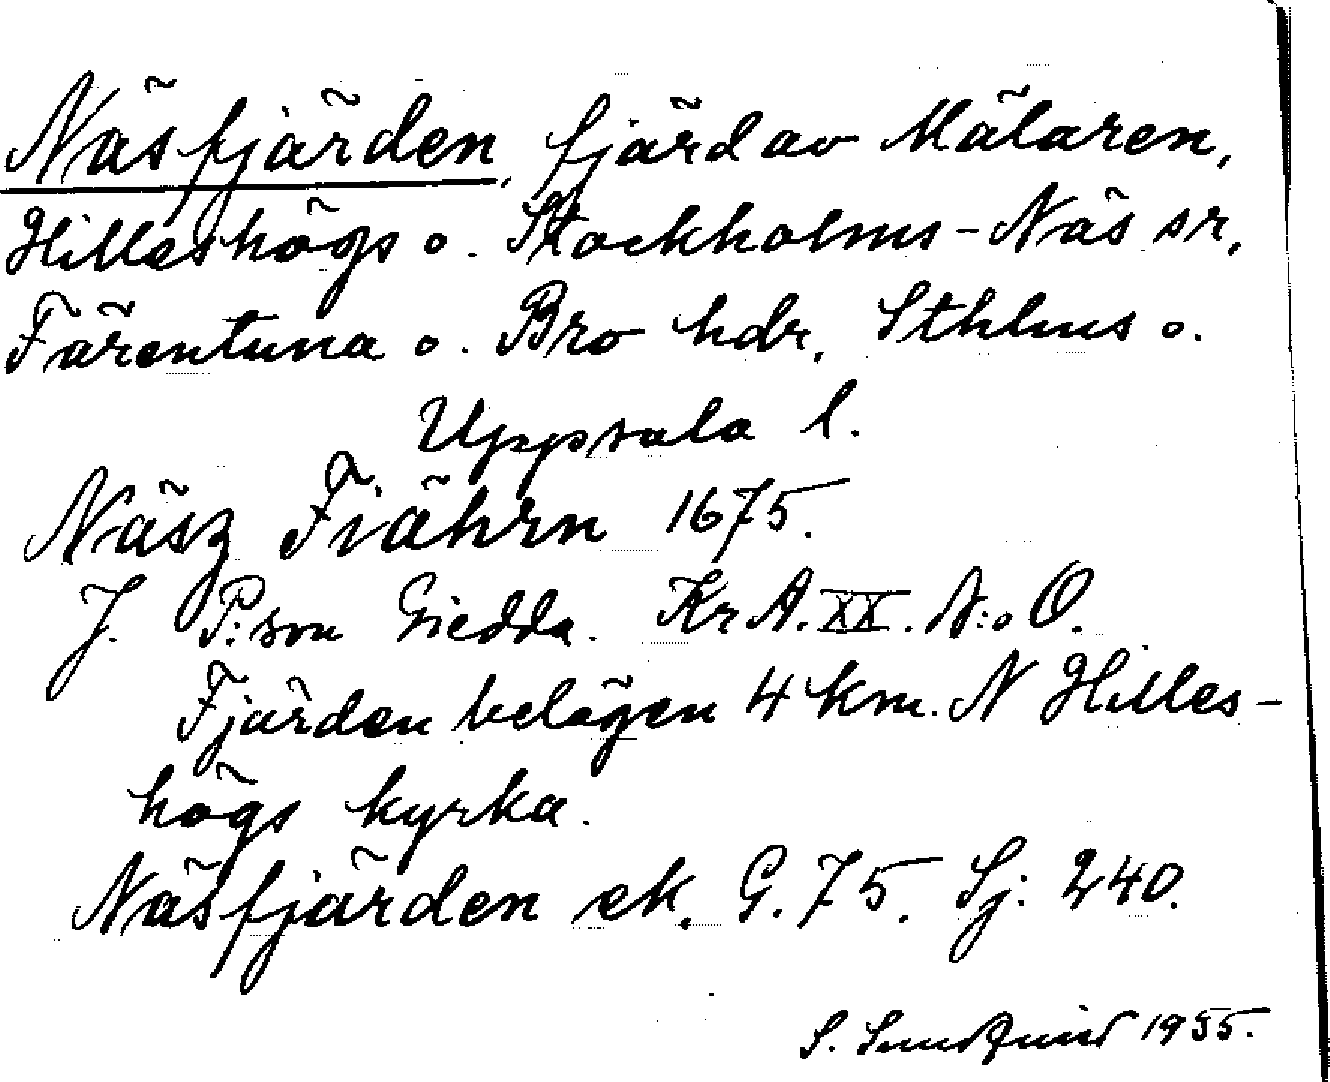 Näsfjärden, fjärd av Mälaren,
Hilleshögs o. Stockholms-Näs sr,
Färentuna o. Bro hdr, Sthlms o.
Uppsala l.
Näsz Fiährn 1675.
J. P:son Giedda. KrA. XX. N:o O.
Fjärden belägen 4 km. N Hilles-
högs kyrka.
Näsfjärden ek. G. 75. Sj: 240.
S. 1955.